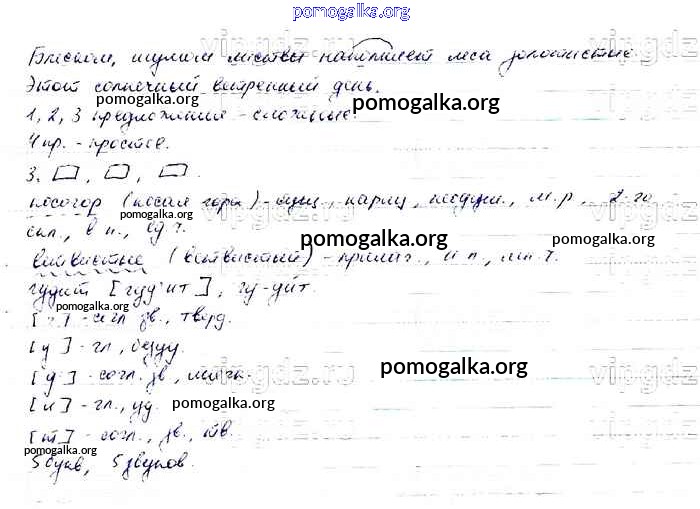 pomogalka.org
Блеском, шумом листвы наполняет леса золотистые
Этот солнечный ветренный день.
pomogalka.org pomogalka.org
1, 2, 3 предложения - сложные.
4 пр. - простое.
3. , , .
косогор (косая гора) - сущ., нариц., неодуш., м.р., 2-го
pomogalka.org vipgdz.ru
скл., в п., ед.ч.
pomogalka.org pomogalka.org
ветвистые (ветвистый) - прилаг., и п., мн.ч.
гудит [гуд'ит], гу-дит.
pomogalka.org
[г] - согл. зв., тверд.
[у] - гл., безуд.
pomogalka.org
[д'] - согл. зв., мягк. vipgdz.ru
[и] - гл., уд. pomogalka.org
[т] - согл., зв., тв.
pomogalka.org
5 букв, 5 звуков.